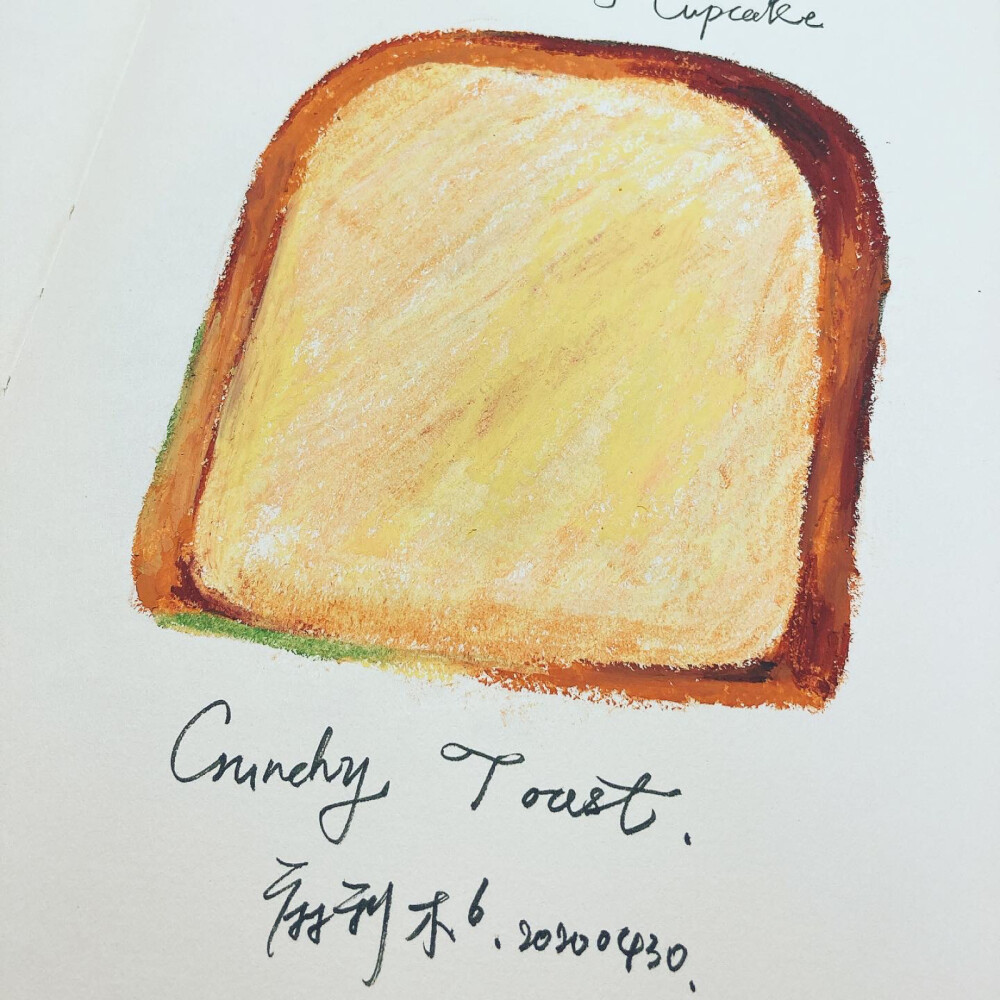 Cupcake
Crunchy Toast.
麻利木6.20200430.